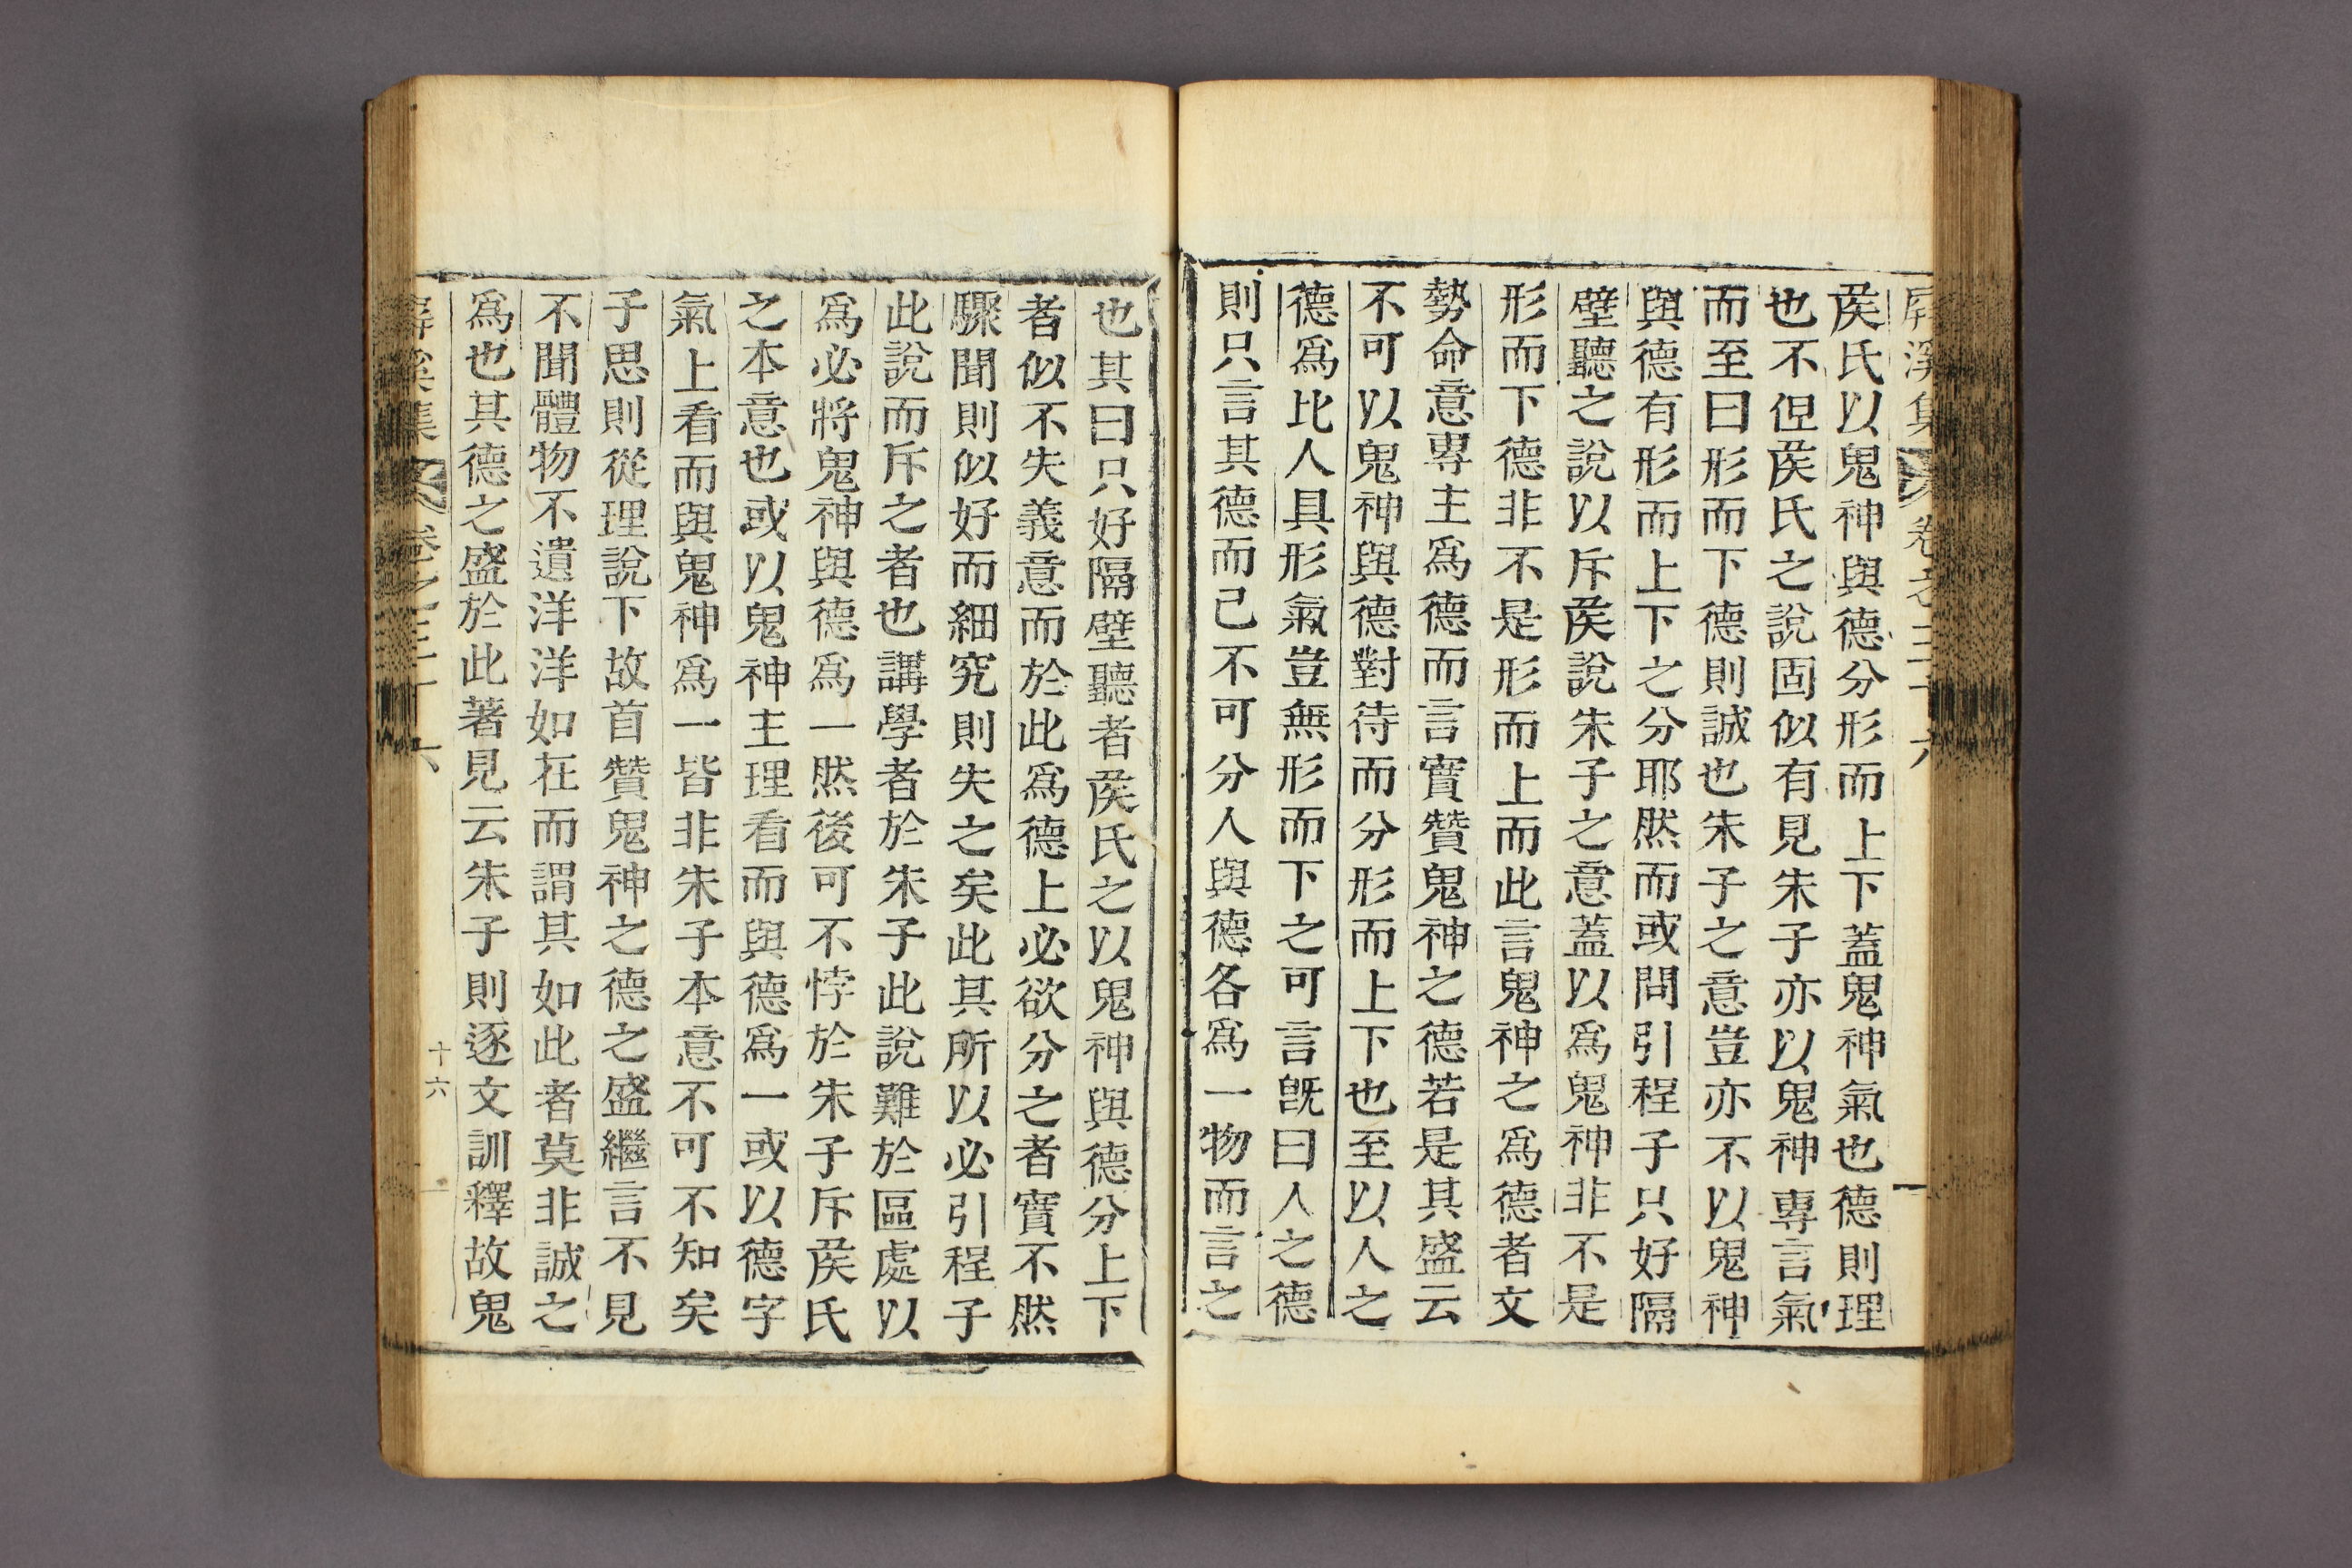 侯氏以鬼神與德分形而上下蓋鬼神氣也德則理
也不但侯氏之說固似有見朱子亦以鬼神專言氣
而至曰形而下德則誠也朱子之意豈亦不以鬼神
與德有形而上下之分耶然而或問引程子只好隔
壁聽之說以斥侯說朱子之意蓋以爲鬼神非不是
形而下德非不是形而上而此言鬼神之爲德者文
勢命意專主爲德而言實贊鬼神之德若是其盛云
不可以鬼神與德對待而分形而上下也至以人之
德爲比人具形氣豈無形而下之可言旣曰人之德
則只言其德而已不可分人與德各爲一物而言之
也其曰只好隔壁聽者侯氏之以鬼神與德分上下
者似不失義意而於此爲德上必欲分之者實不然
驟聞則似好而細究則失之矣此其所以必引程子
此說而斥之者也講學者於朱子此說難於區處以
爲必將鬼神與德爲一然後可不悖於朱子斥侯氏
之本意也或以鬼神主理看而與德爲一或以德字
氣上看而與鬼神爲一皆非朱子本意不可不知矣
子思則從理說下故首贊鬼神之德之盛繼言不見
不聞體物不遺洋洋如在而謂其如此者莫非誠之
爲也其德之盛於此著見云朱子則逐文訓釋故鬼
屛溪集 卷之三十六
十六